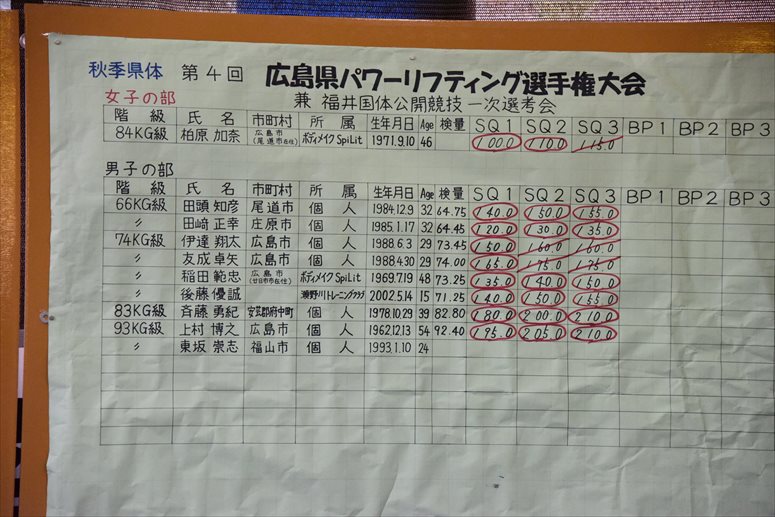 秋季県体 第4回 広島県パワーリフティング選手権大会
兼 福井国体公開競技 一次選考会
女子の部
階級 氏名 市町村 所属 生年月日 Age 検量 SQ1 SQ2 SQ3 BP1 BP2 BP3
84KG級 柏原 加奈 広島市(尾道市在住) ボディメイクSpiLit 1971.9.10 46 100.0 110.0 115.0
男子の部
階級 氏名 市町村 所属 生年月日 Age 検量 SQ1 SQ2 SQ3 BP1 BP2 BP3
66KG級 田頭 知彦 尾道市 個人 1984.12.9 32 64.75 140.0 150.0 155.0
〃 田崎 正幸 庄原市 個人 1985.1.17 32 64.45 120.0 130.0 135.0
74KG級 伊達 翔太 広島市 個人 1988.6.3 29 73.45 150.0 160.0 160.0
〃 友成 卓矢 広島市 個人 1988.4.30 29 74.00 165.0 175.0 175.0
〃 稲田 範忠 広島市(廿日市市在住) ボディメイクSpiLit 1969.7.19 48 73.25 135.0 140.0 150.0
〃 後藤 優誠 瀬野川トレーニングクラブ 2002.5.14 15 71.25 140.0 150.0 155.0
83KG級 斉藤 勇紀 安芸郡府中町 個人 1978.10.29 39 82.80 180.0 200.0 210.0
93KG級 上村 博之 広島市 個人 1962.12.13 54 92.40 195.0 205.0 210.0
〃 東坂 崇志 福山市 個人 1993.1.10 24